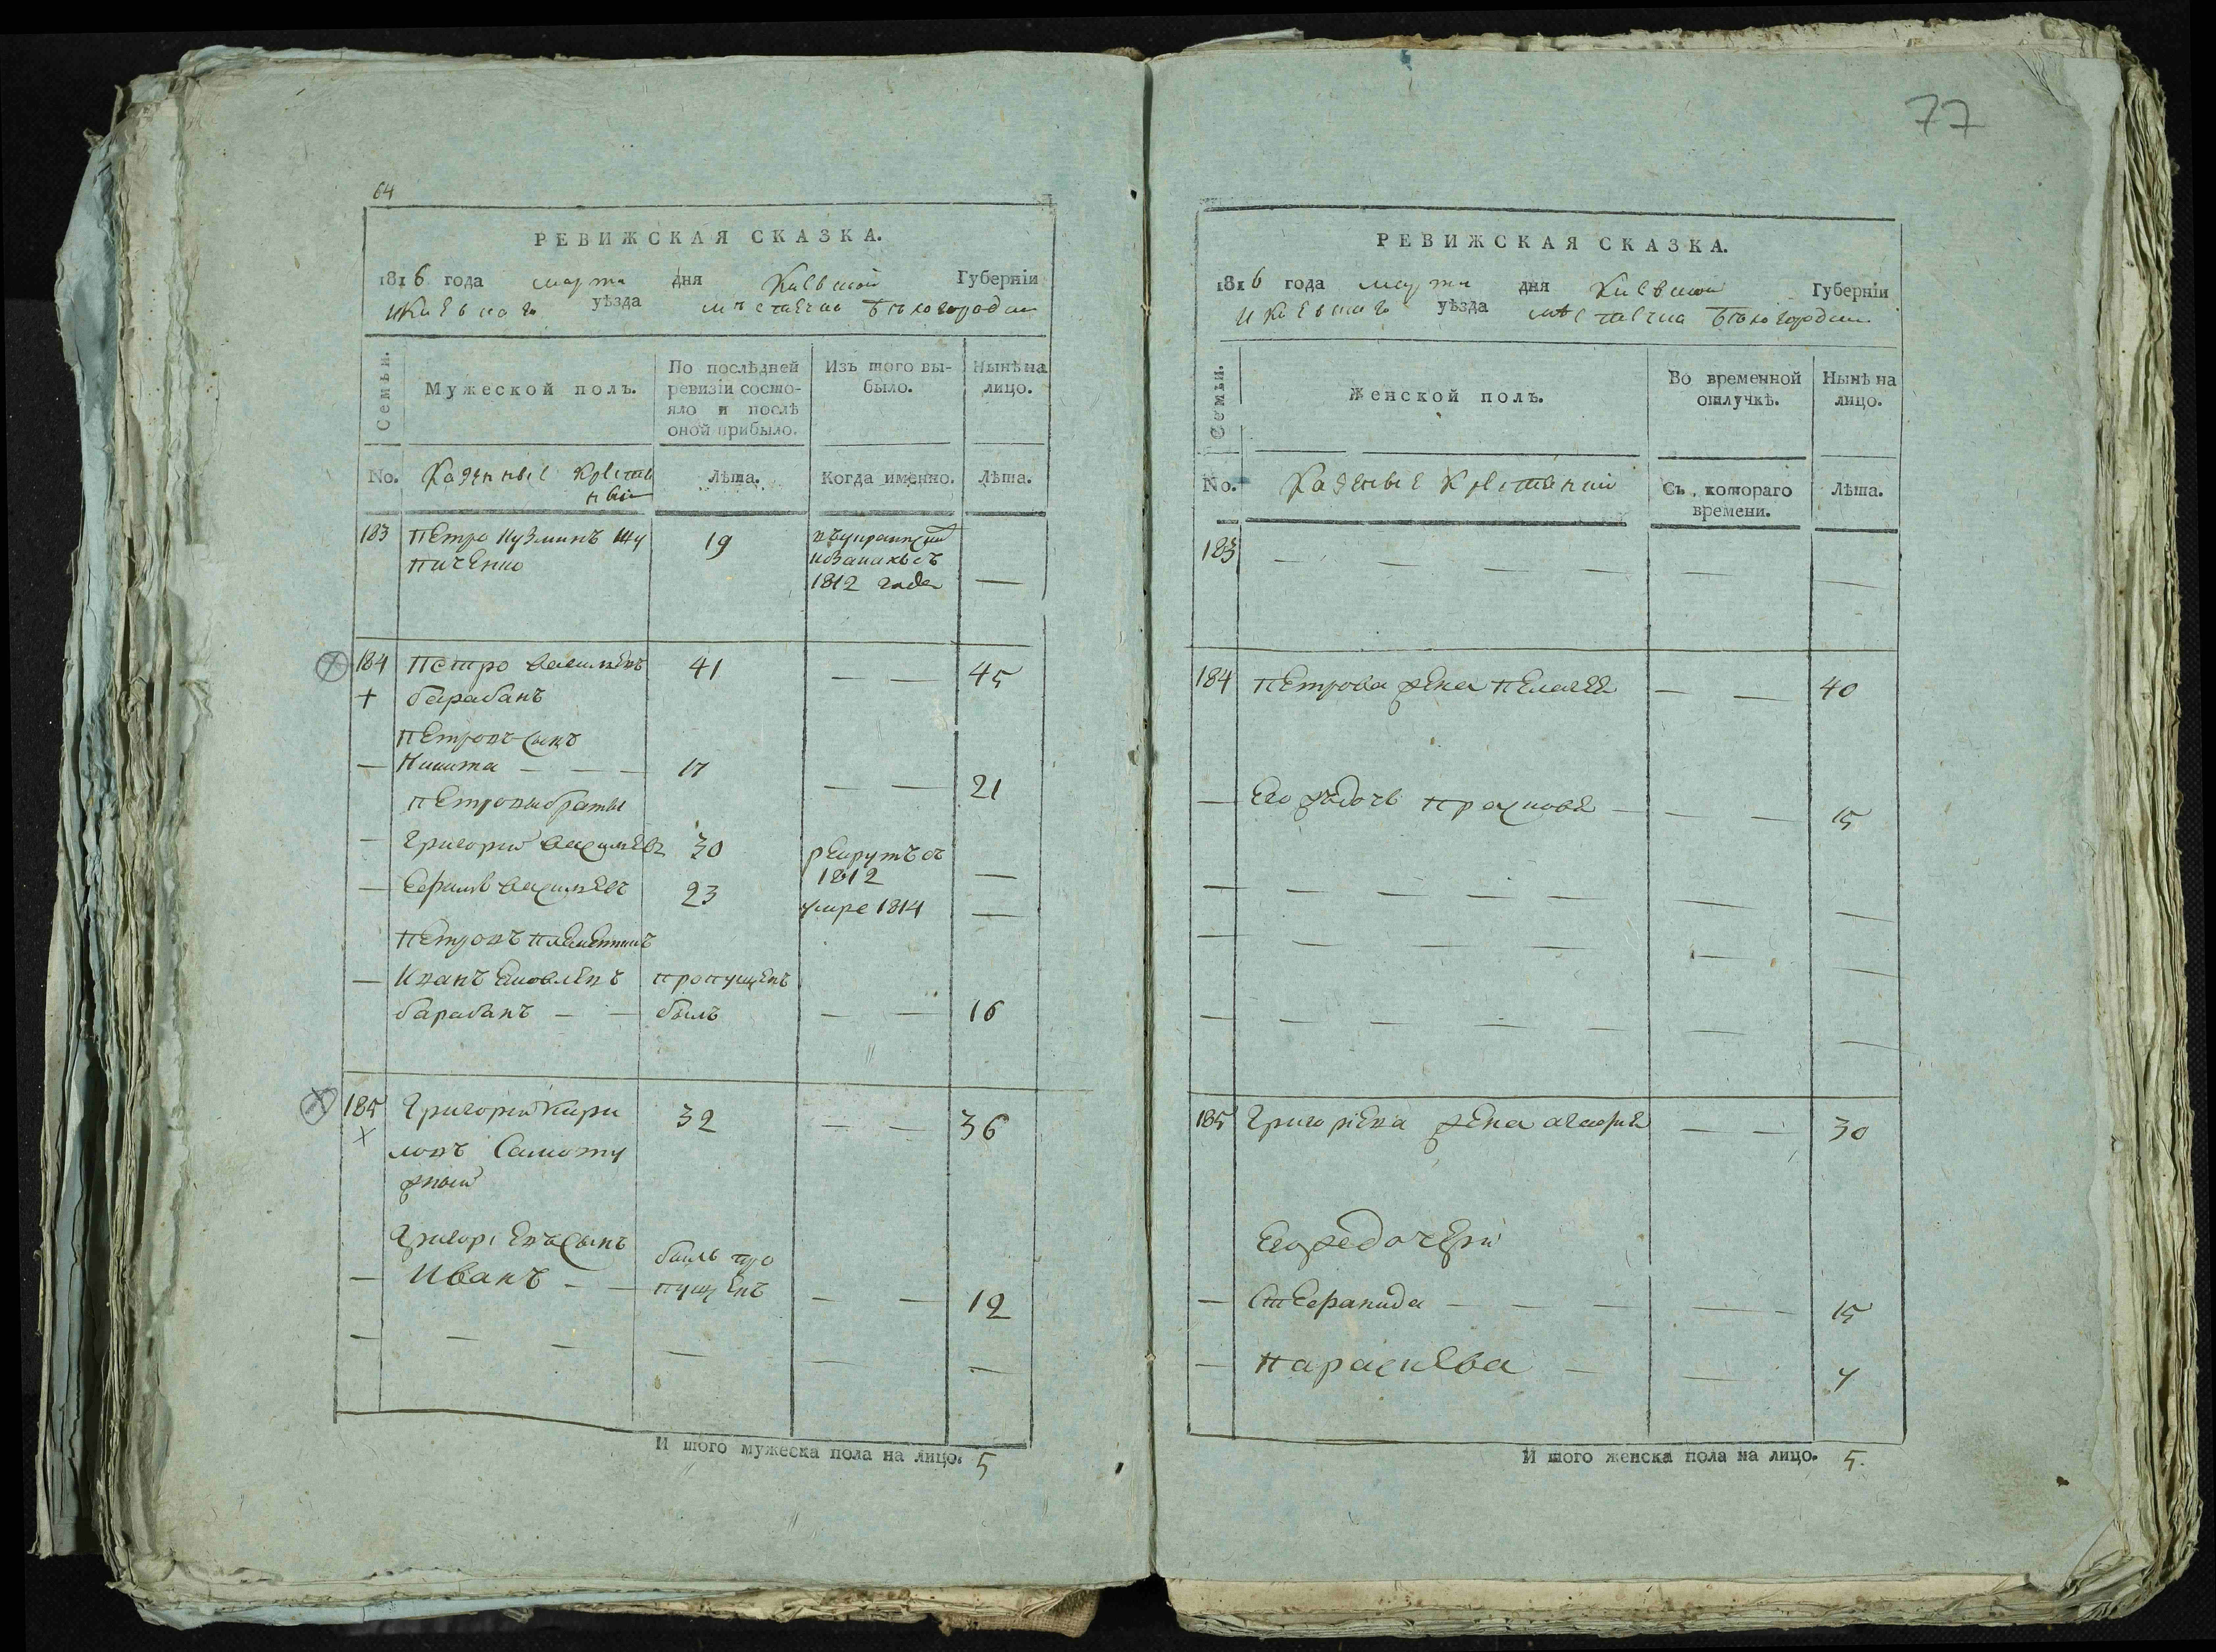 77
64
РЕВИЖСКАЯ СКАЗКА.
1816 года марта дня Киевской Губерніи
и Киевскаго уѣзда мѣстечка Бѣлогородки
Семьи.
Мужеской полъ.
По послѣдней ревизіи состо-
яло и послѣ
оной прибыло.
Изъ того вы-
было.
Нынѣ на
лицо.
No.
Казенные крестя
нѣ
Лѣта.
Когда именно.
Лѣта.
183 Петро Кузминъ
пиченко
19
въ украинский
козаки съ
1812 года —
184 Петро Василиевъ 41 — — 45
+ барабанъ
Петровъ сынъ
— Никита — — — 17 — — 21
Петровы браты
— Григорий Василиевъ 30 рекрутъ съ
1812 —
— Ефимъ Василиевъ 23 умре 1814 —
Петровъ племенникъ
— Иванъ Яковлевъ пропущенъ
барабанъ — — былъ — — 16
185 Григорий Кири 32 — — 36
x ловъ Самоту
жный
Григориевъ сынъ
— Иванъ — — былъ про
пущенъ — — 12
— — — — — —
И того мужеска пола на лицо. 5
РЕВИЖСКАЯ СКАЗКА.
1816 года марта дня Киевской Губерніи
и Киевскаго уѣзда мѣстечка Бѣлогородки
Семьи.
Женской полъ.
Во временной
отлучкѣ.
Нынѣ на
лицо.
No.
Казеные крестяний
Съ котораго
времени.
Лѣта.
183 — — — — — —
184 Петрова жена Пелагея — — 40
— Его же дочь Прасковя — — — 15
— — — — — — —
— — — — — —
— — — — — — —
185 Григориева жена — — 30
Его же дочери
— Стефанида — — — — 15
— Параскева — — 4
И того женска пола на лицо. 5.